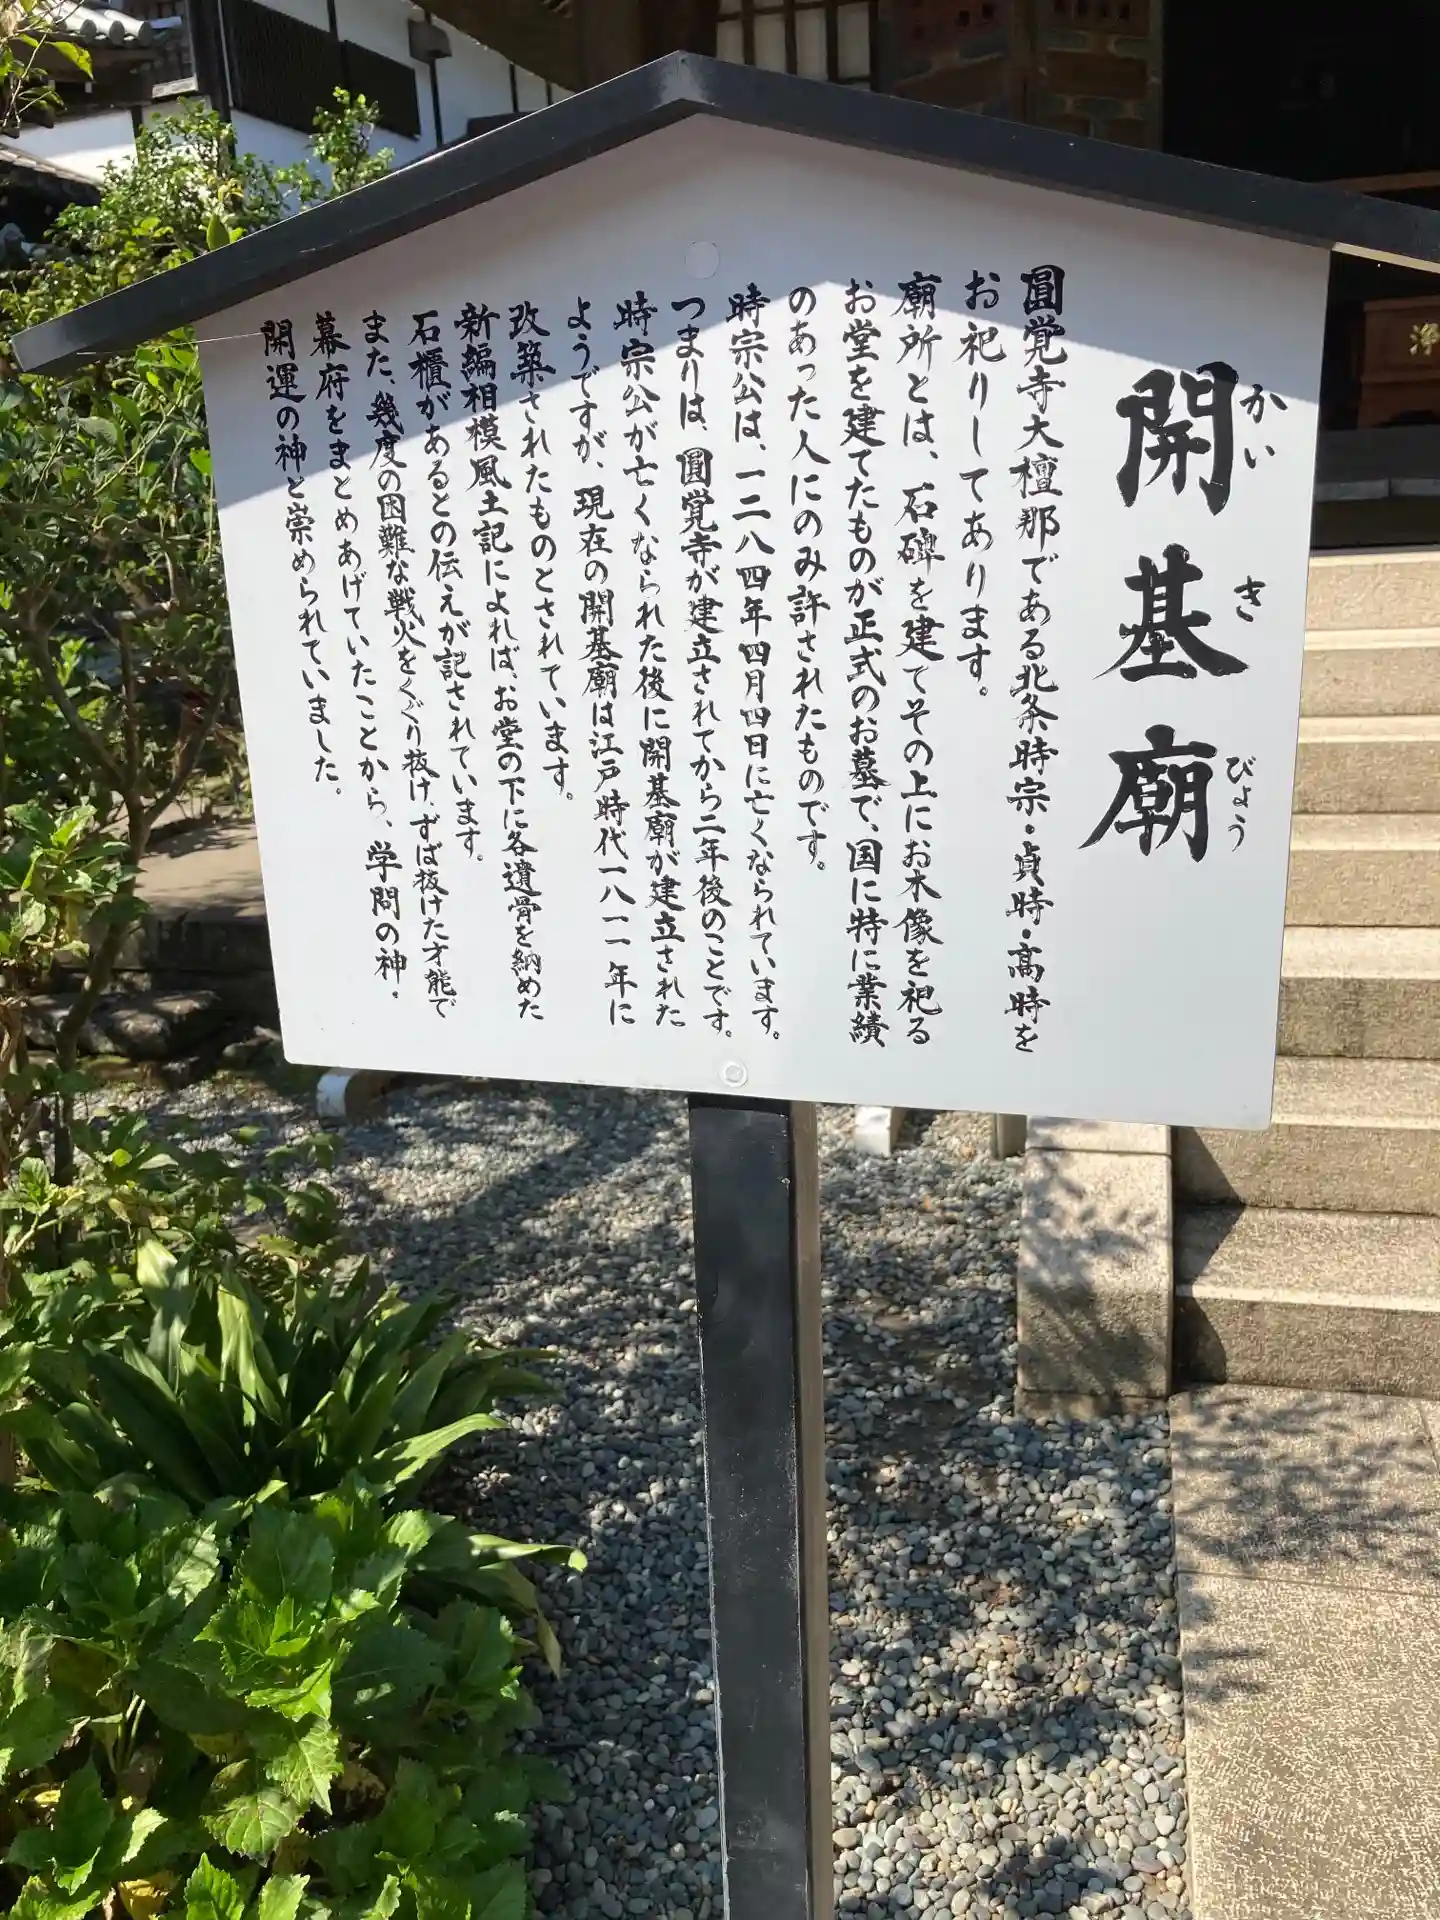 開基廟
かいきびょう
圓覚寺大檀那である北条時宗・貞時・高時を
お祀りしてあります。
廟所とは、石碑を建てその上にお木像を祀る
お堂を建てたものが正式のお墓で、国に特に業績
のあった人にのみ許されたものです。
時宗公は、一二八四年四月四日に亡くなられています。
つまりは、圓覚寺が建立されてから二年後のことです。
時宗公が亡くなられた後に開基廟が建立された
ようですが、現在の開基廟は江戸時代一八一一年に
改築されたものとされています。
新編相模風土記によれば、お堂の下に各遺骨を納めた
石櫃があるとの伝えが記されています。
また、幾度の困難な戦火をくぐり抜け、ずば抜けた才能で
幕府をまとめあげていたことから、学問の神・
開運の神と崇められていました。
浄